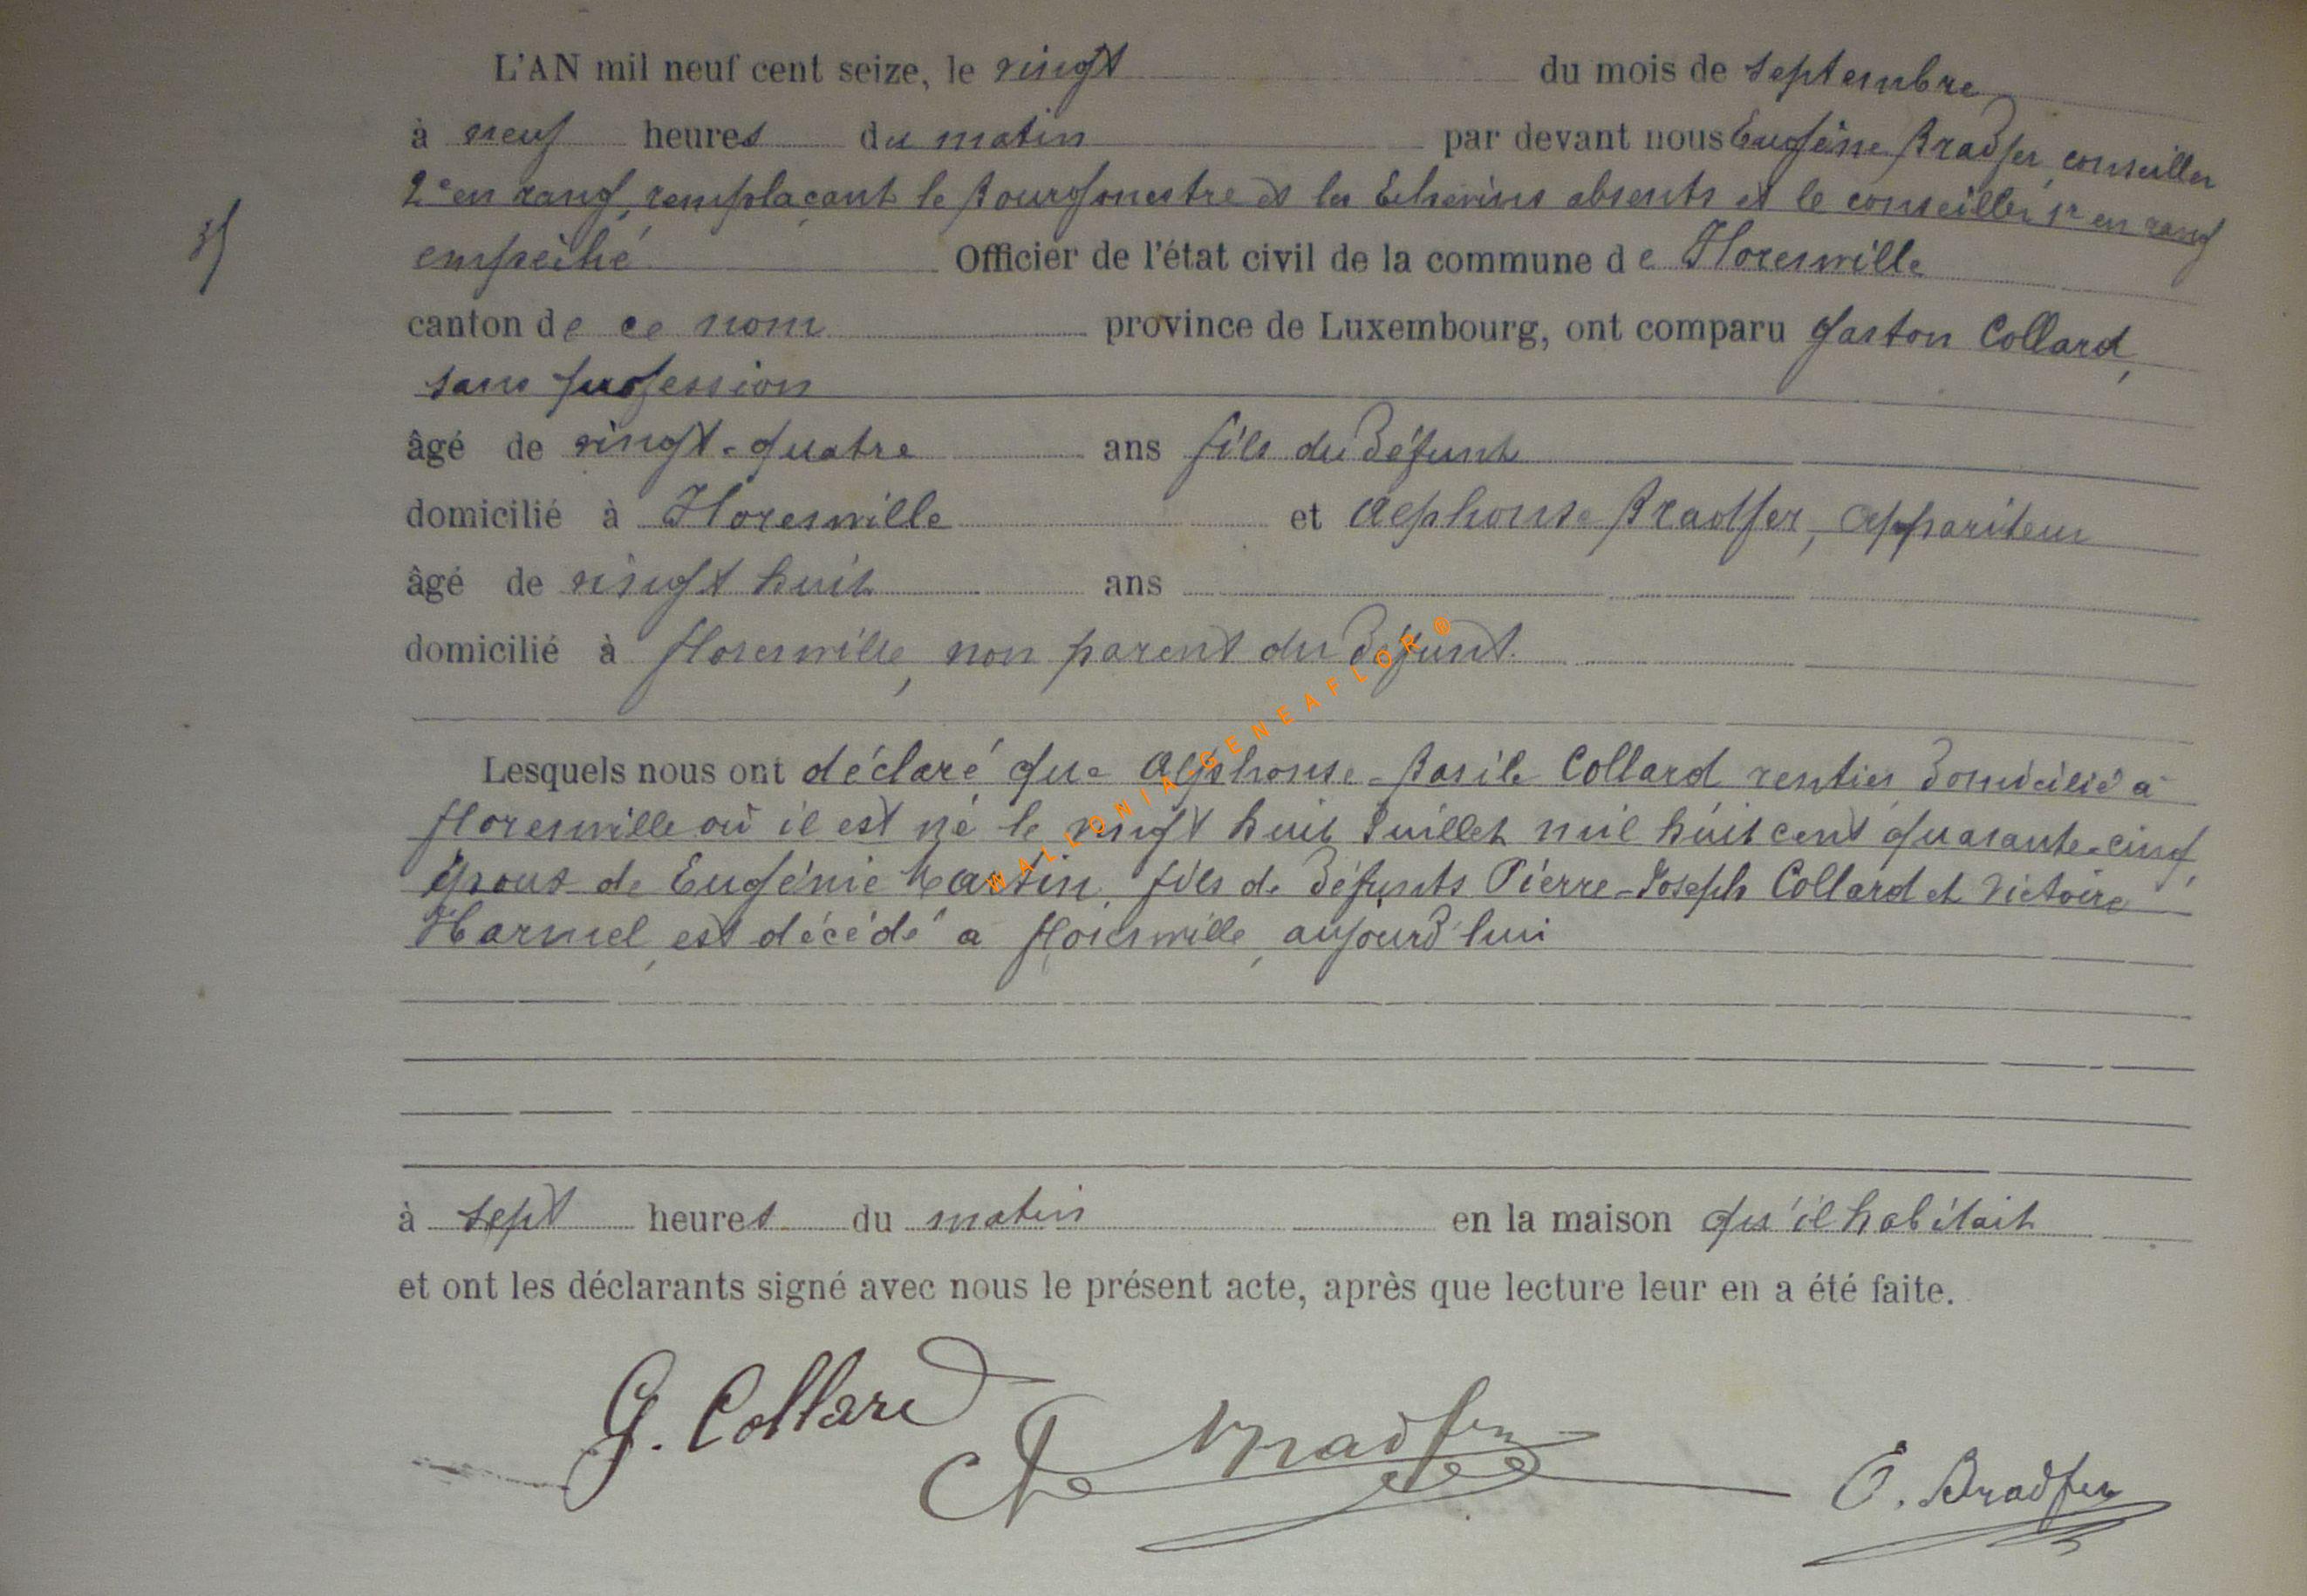 L'AN mil neuf cent seize, le vingt du mois de septembre
à neuf heures du matin par devant nous Eugène Bradfer, conseiller
2e en rang, remplaçant le Bourgmestre et les Echevins absents et le conseiller 1r en rang
empêché Officier de l'état civil de la commune de Florenville
canton de ce nom province de Luxembourg, ont comparu Gaston Collard,
sans profession
âgé de vingt-quatre ans fils du défunt
domicilié à Florenville et Alphonse Bradfer, appariteur
âgé de vingt huit ans
domicilié à Florenville, non parent du défunt.
Lesquels nous ont déclaré que Alphonse-Basile Collard rentier domicilié à
Florenville où il est né le vingt huit Juillet mil huit cent quarante-cinq,
époux de Eugénie Martin, fils de défunts Pierre-Joseph Collard et Victoire
Harmel, est décédé à Florenville, aujourd'hui
à sept heures du matin en la maison qu'il habitait
et ont les déclarants signé avec nous le présent acte, après que lecture leur en a été faite.
G. Collard
Bradfer
E. Bradfer
WALLONIA GENEAFLOR ®